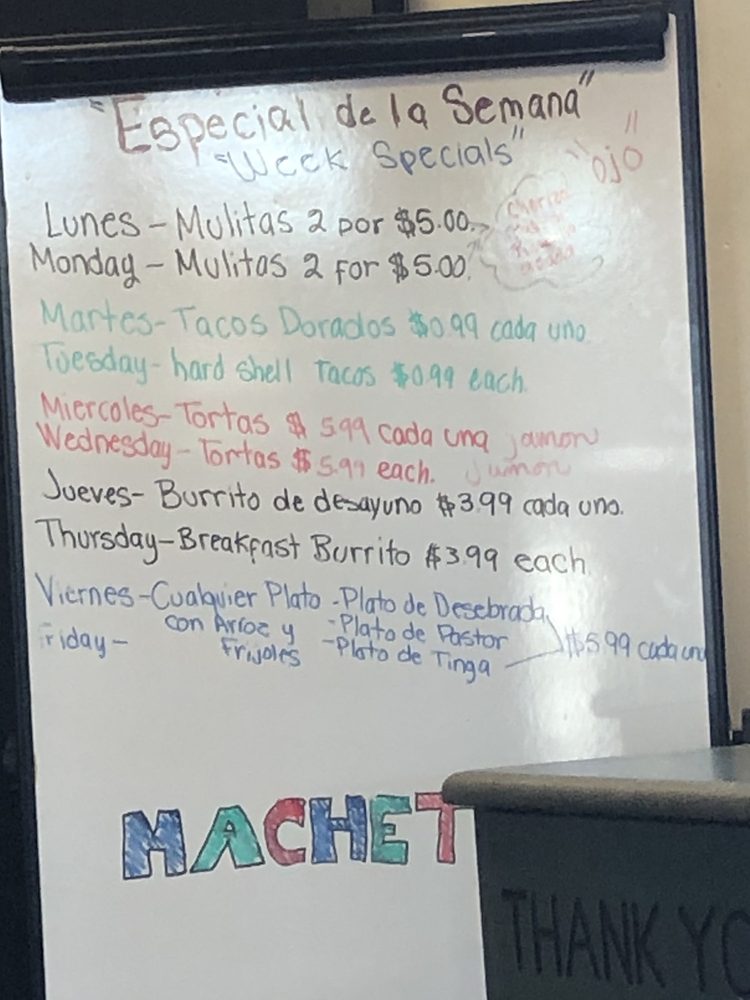 "Especial de la Semana"
"Week Specials"
"Ojo"
Lunes - Mulitas 2 por $5.00.
Monday - Mulitas 2 for $5.00.
Martes - Tacos Dorados $0.99 cada uno
Tuesday - hard shell Tacos $0.99 each.
Miercoles - Tortas $ 5.99 cada una jamon
Wednesday - Tortas $5.99 each. Jumon
Jueves - Burrito de desayuno $3.99 cada uno.
Thursday - Breakfast Burrito $3.99 each.
Viernes - Cualquier Plato - Plato de Desebrada
con Arroz y - Plato de Pastor
Friday - Frijoles - Plato de Tinga $5.99 cada uno
MACHET
THANK YO